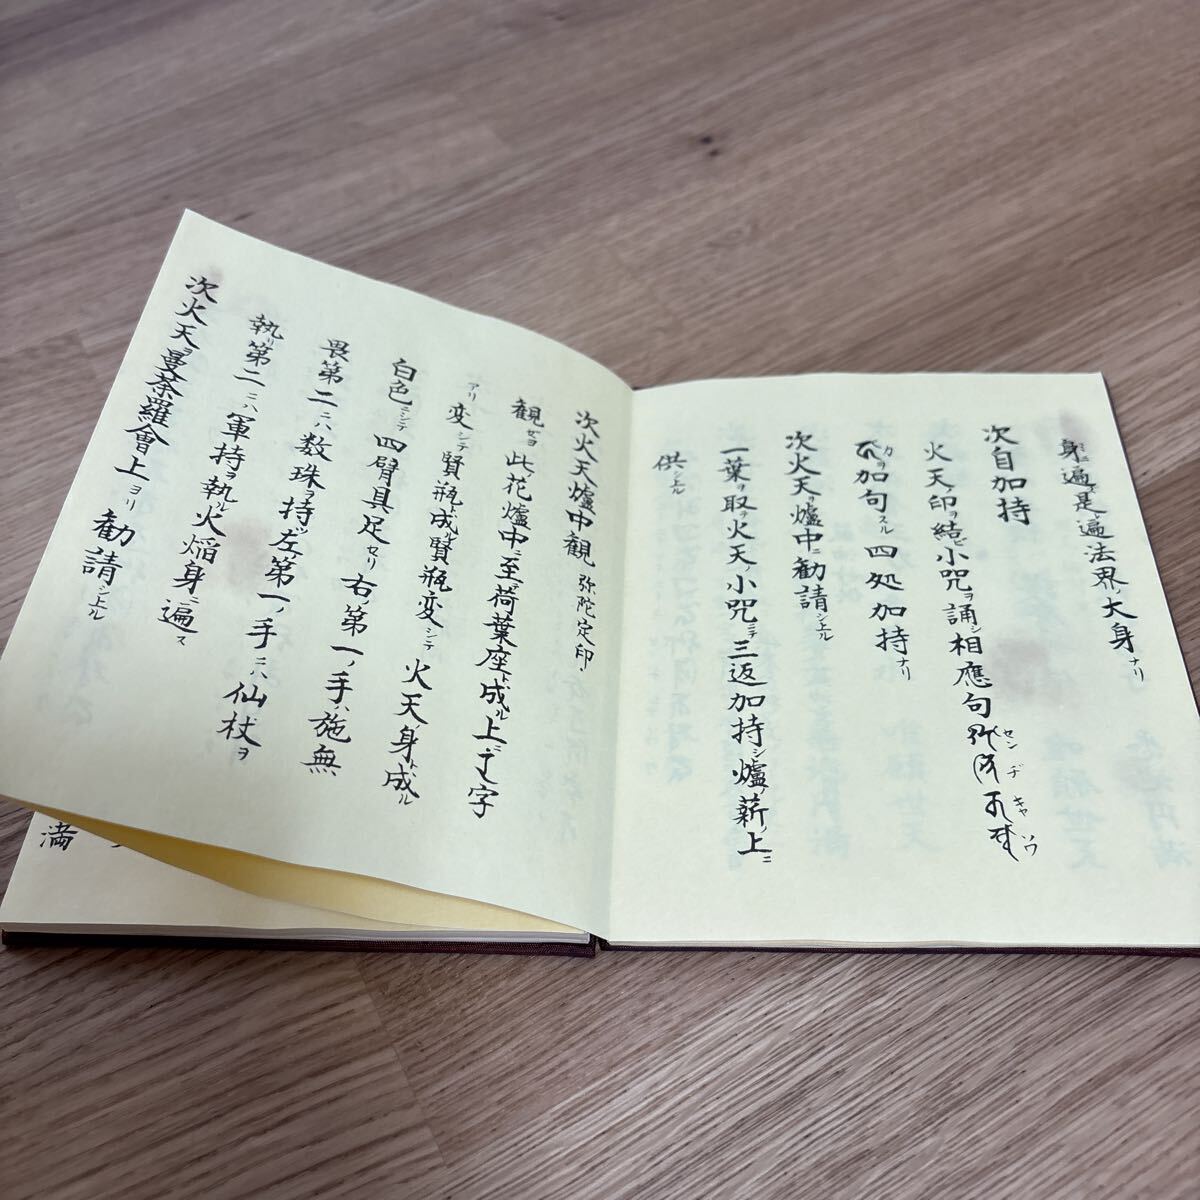 身ニ遍ズ是レ遍法界ノ大身ナリ
次自加持
火天ノ印ヲ結ビ小咒ヲ誦シ相應句センヂキャソワ
カヲ加句スル四処加持ナリ
次火天ヲ爐中ニ勧請シ上ル
一葉ヲ取テ火天小咒ニテ三返加持シ爐ノ薪ノ上ニ
供シ上ル
次火天爐中観 弥陀定印
観ゼヨ此花爐中ニ至テ荷葉座ト成ル上ニ字
アリ変シテ賢瓶ト成ル賢瓶変シテ火天ノ身ト成ル
白色ニシテ四臂具足セリ右ノ第一ノ手ハ施無
畏第二ニハ数珠ヲ持ツ左第一ノ手ニハ仙杖ヲ
執リ第二ニハ軍持ヲ執ル火焔身ニ遍ス
次火天ヲ曼荼羅會上ヨリ勧請シ上ル
満